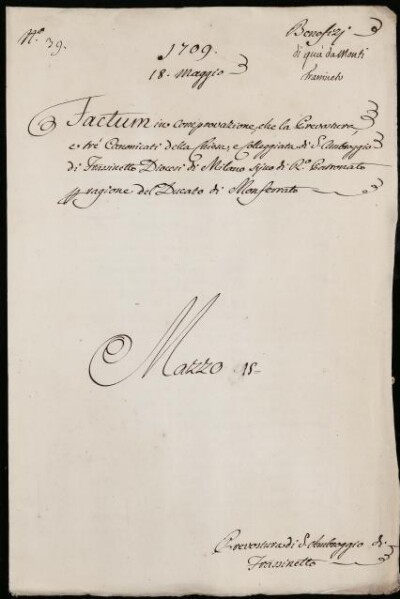 N.° 39.
1709.
18. Maggio
Benefizj
di quà da Monti
Frassineto
Factum in comprovazione, che la Prevostura,
e trè Canonicati della Chiesa, e Collegiata di S. Ambroggio
di Frassinetto Diocesi di Milano sijno di R.° Patronato
p ragione del Ducato di Monferrato
Mazzo 15
Prevostura di S. Ambroggio di
Frassinetto